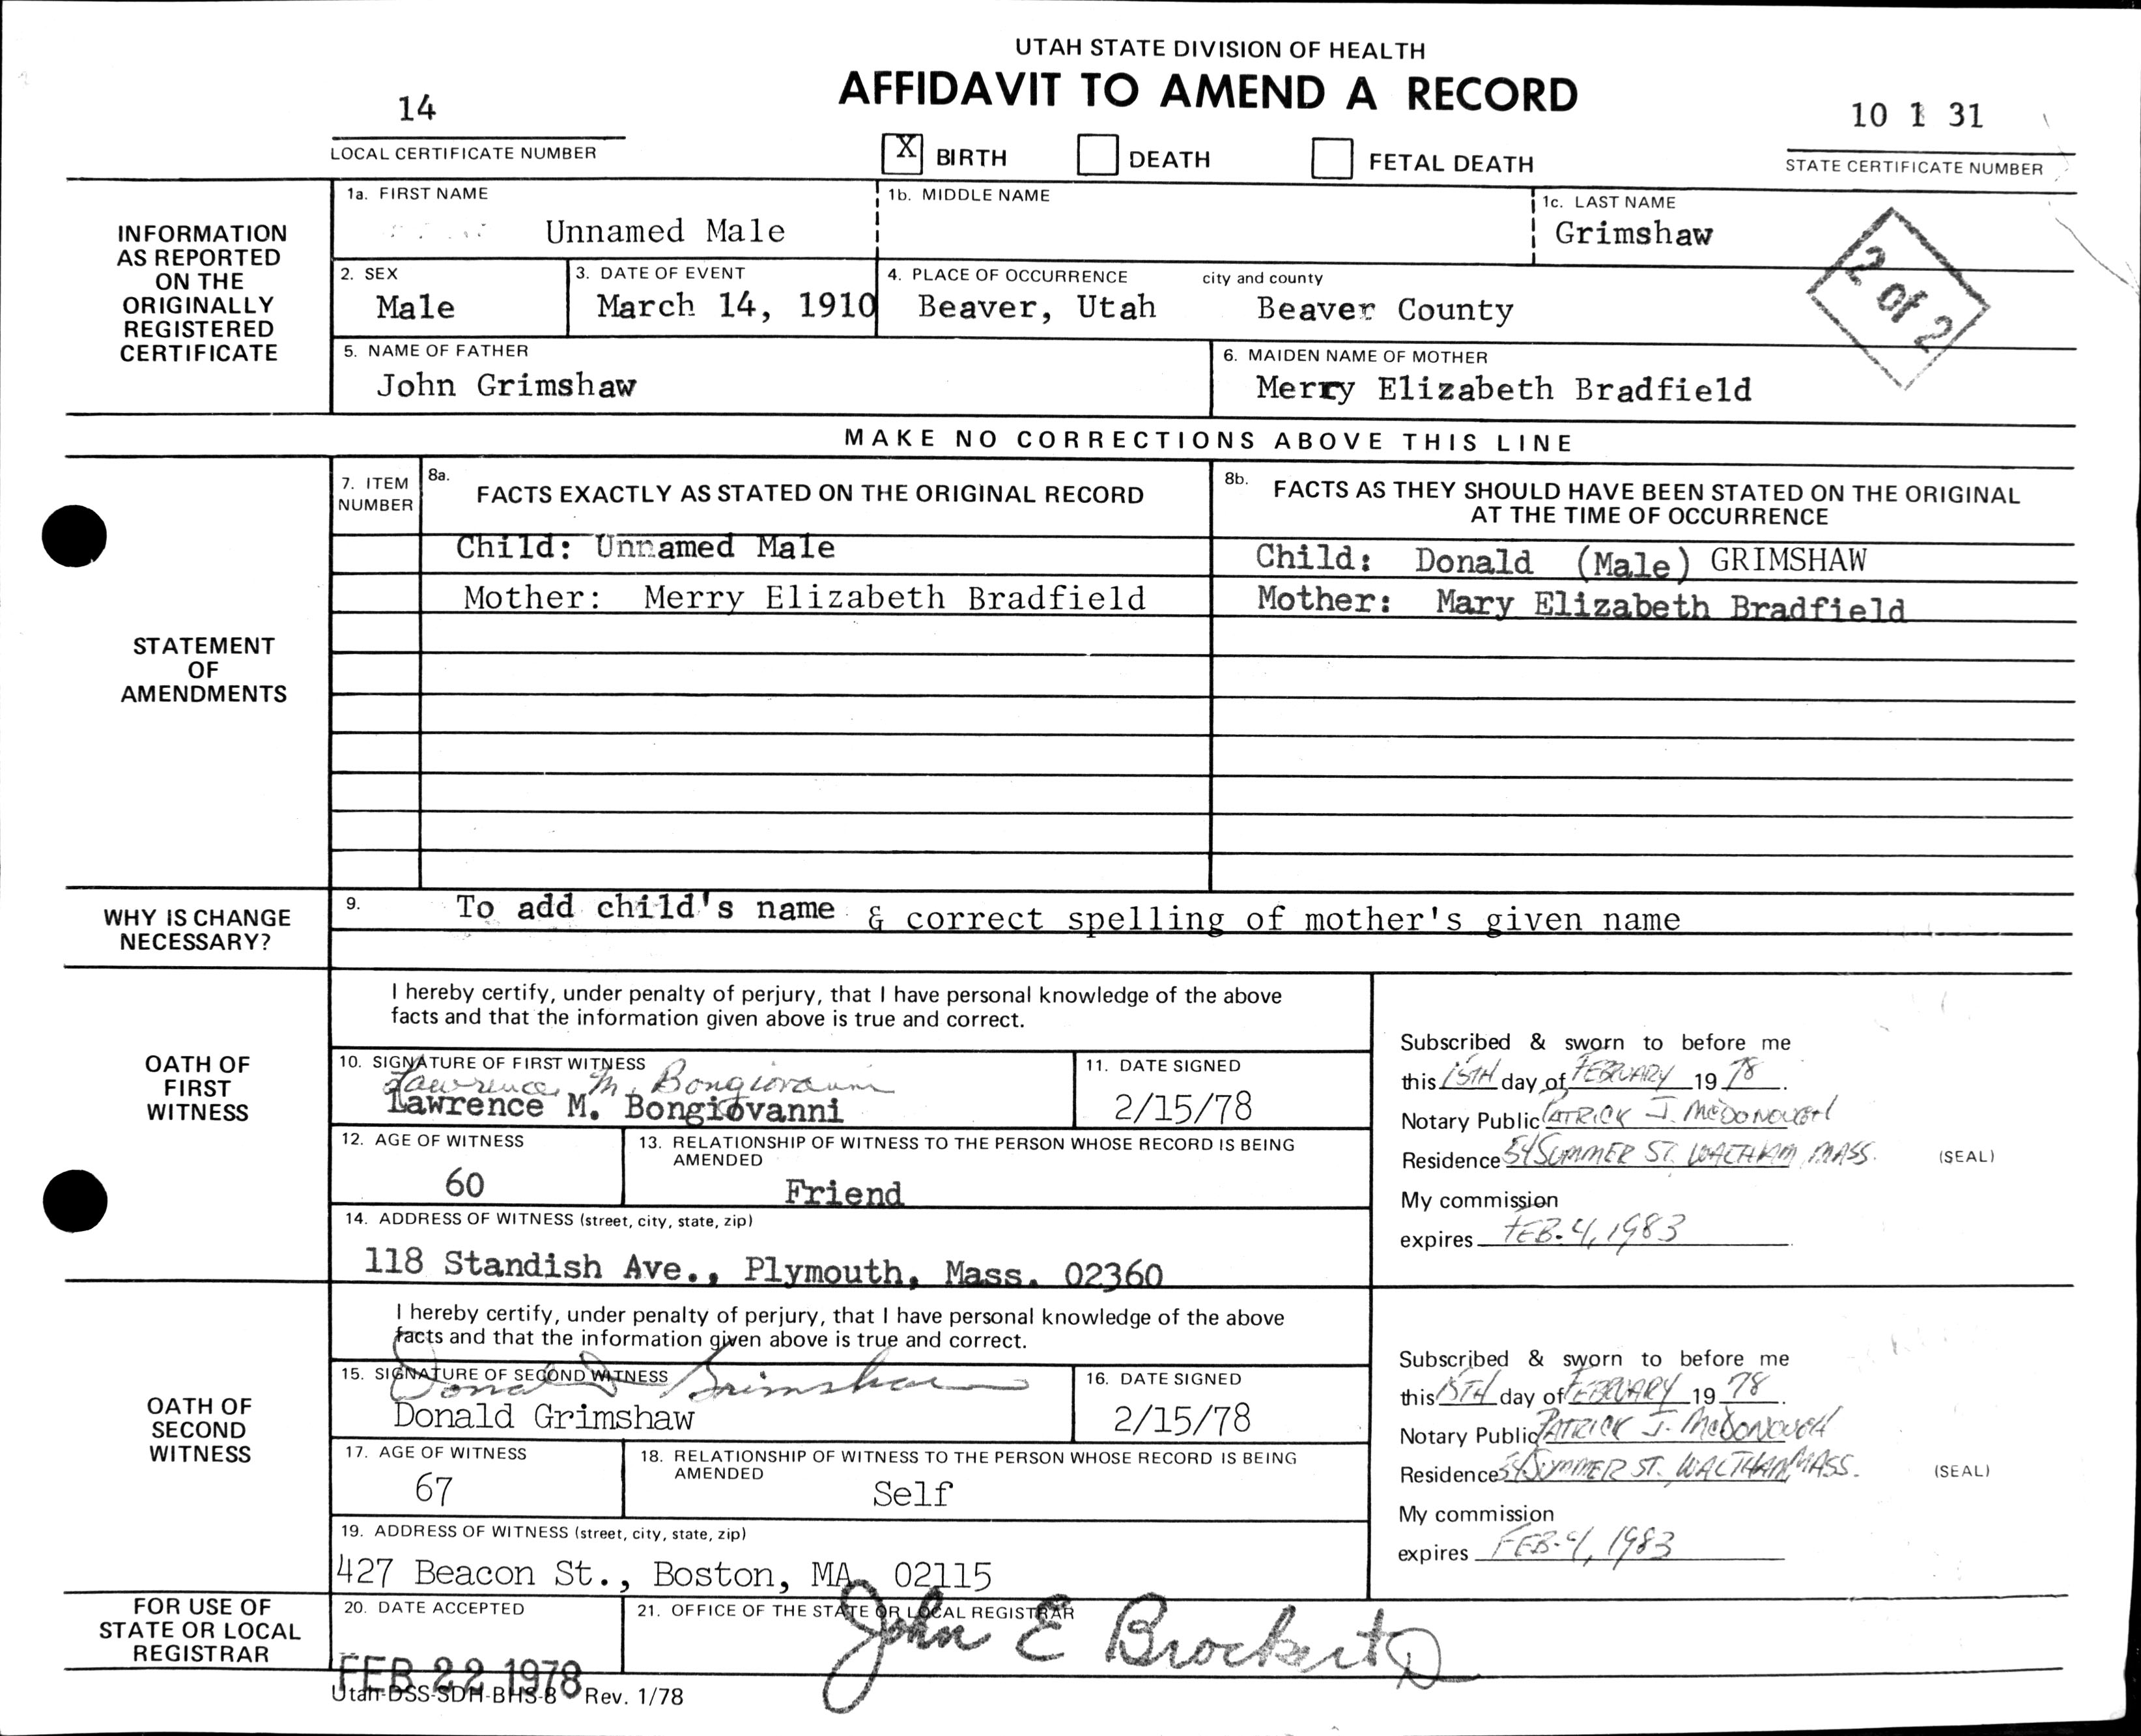 UTAH STATE DIVISION OF HEALTH
AFFIDAVIT TO AMEND A RECORD
14
10 1 31
LOCAL CERTIFICATE NUMBER
X BIRTH DEATH FETAL DEATH
STATE CERTIFICATE NUMBER
INFORMATION
AS REPORTED
ON THE
ORIGINALLY
REGISTERED
CERTIFICATE
1a. FIRST NAME
Unnamed Male
1b. MIDDLE NAME
1c. LAST NAME
Grimshaw
2 of 2
2. SEX
Male
3. DATE OF EVENT
March 14, 1910
4. PLACE OF OCCURRENCE city and county
Beaver, Utah Beaver County
5. NAME OF FATHER
John Grimshaw
6. MAIDEN NAME OF MOTHER
Merry Elizabeth Bradfield
MAKE NO CORRECTIONS ABOVE THIS LINE
STATEMENT
OF
AMENDMENTS
7. ITEM
NUMBER
8a. FACTS EXACTLY AS STATED ON THE ORIGINAL RECORD
8b. FACTS AS THEY SHOULD HAVE BEEN STATED ON THE ORIGINAL
AT THE TIME OF OCCURRENCE
Child: Unnamed Male
Child: Donald (Male) GRIMSHAW
Mother: Merry Elizabeth Bradfield
Mother: Mary Elizabeth Bradfield
WHY IS CHANGE
NECESSARY?
9. To add child's name & correct spelling of mother's given name
OATH OF
FIRST
WITNESS
I hereby certify, under penalty of perjury, that I have personal knowledge of the above
facts and that the information given above is true and correct.
10. SIGNATURE OF FIRST WITNESS
Lawrence M. Bongiovanni
Lawrence M. Bongiovanni
11. DATE SIGNED
2/15/78
12. AGE OF WITNESS
60
13. RELATIONSHIP OF WITNESS TO THE PERSON WHOSE RECORD IS BEING
AMENDED
Friend
14. ADDRESS OF WITNESS (street, city, state, zip)
118 Standish Ave., Plymouth, Mass. 02360
Subscribed & sworn to before me
this 15TH day of FEBRUARY 19 78.
Notary Public PATRICK J. McDONOUGH
Residence 54 SUMMER ST. WALTHAM, MASS. (SEAL)
My commission
expires FEB. 4, 1983
OATH OF
SECOND
WITNESS
I hereby certify, under penalty of perjury, that I have personal knowledge of the above
facts and that the information given above is true and correct.
15. SIGNATURE OF SECOND WITNESS
Donald Grimshaw
Donald Grimshaw
16. DATE SIGNED
2/15/78
17. AGE OF WITNESS
67
18. RELATIONSHIP OF WITNESS TO THE PERSON WHOSE RECORD IS BEING
AMENDED
Self
19. ADDRESS OF WITNESS (street, city, state, zip)
427 Beacon St., Boston, MA 02115
Subscribed & sworn to before me
this 15TH day of FEBRUARY 19 78.
Notary Public PATRICK J. McDONOUGH
Residence 54 SUMMER ST. WALTHAM, MASS. (SEAL)
My commission
expires FEB. 4, 1983
FOR USE OF
STATE OR LOCAL
REGISTRAR
20. DATE ACCEPTED
FEB 22 1978
21. OFFICE OF THE STATE OR LOCAL REGISTRAR
John E Brockert
Utah-DSS-SDH-BHS-8 Rev. 1/78